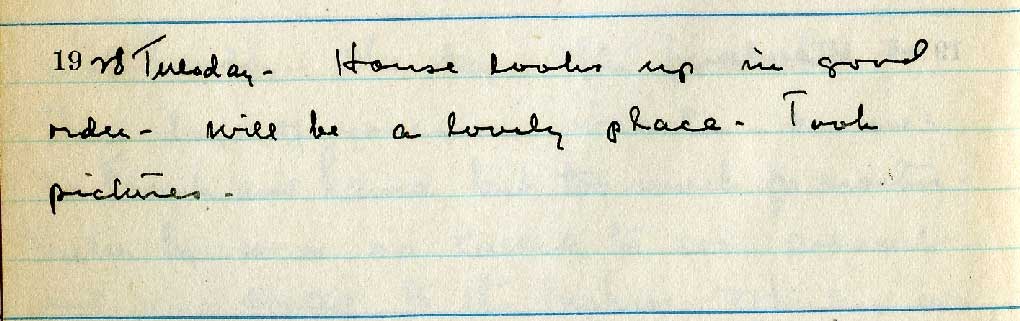 1928 Tuesday - House looks up in good
order - will be a lovely place - Took
pictures -